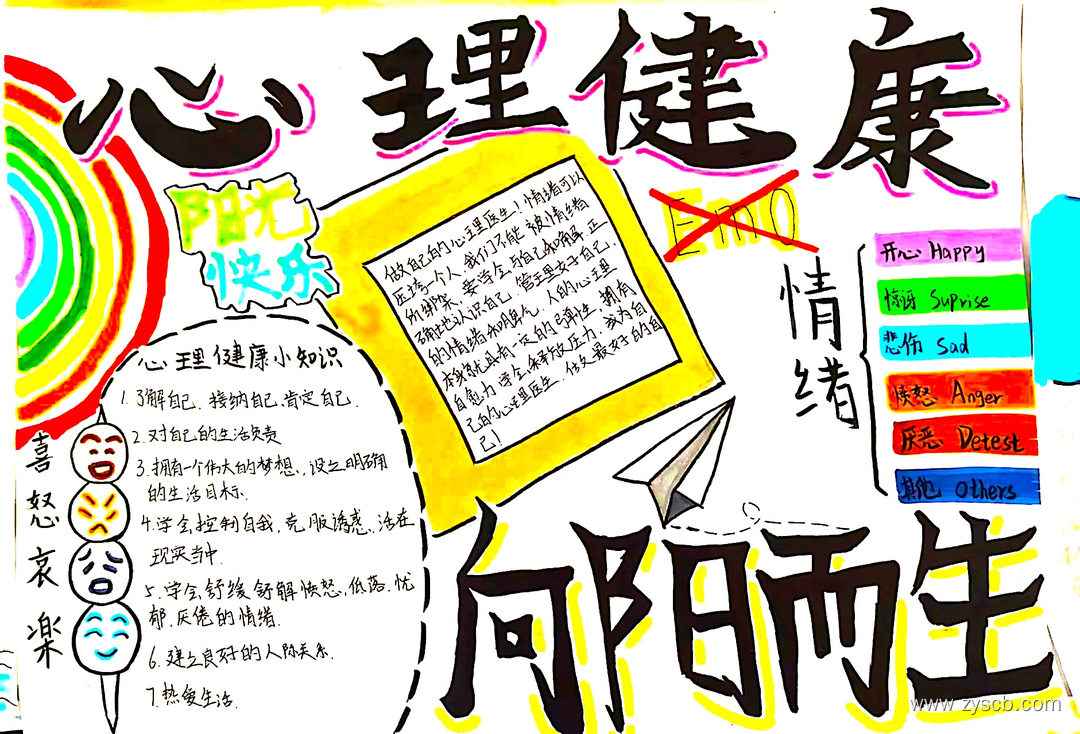 心理健康
阳光
快乐
Emo
做自己的心理医生！情绪可以
压垮一个人，我们不能被情绪
所绑架、要学会与自己和解，正
确地认识自己，管理好自己
的情绪和脾气，人的心理
本身就具有一定的弹性，拥有
自愈力，学会释放压力，成为自
己的心理医生，做最好的自
己！
情绪
开心 Happy
惊讶 Suprise
悲伤 Sad
愤怒 Anger
厌恶 Detest
其他 Others
心理健康小知识
1.了解自己、接纳自己、肯定自己.
2.对自己的生活负责
3.拥有一个伟大的梦想、设立明确
的生活目标.
4.学会控制自我，克服诱惑、活在
现实当中
5.学会舒缓、舒解愤怒、低落、忧
郁、厌倦的情绪.
6.建立良好的人际关系.
7.热爱生活.
喜
怒
哀
乐
向阳而生
www.zyscb.com